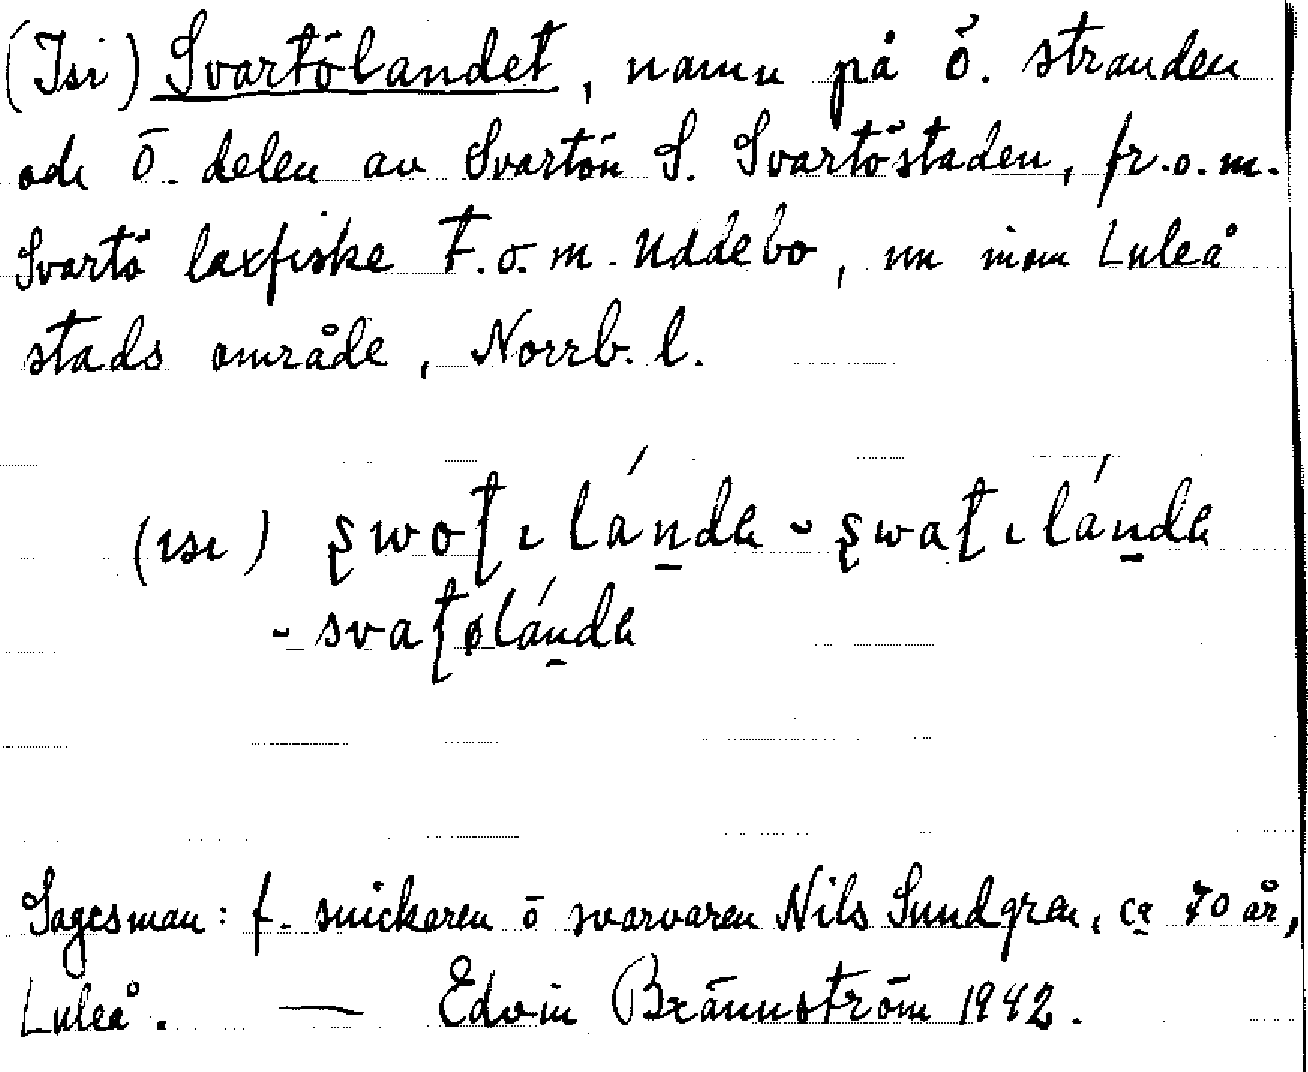 (Isi) Svartölandet, namn på ö. stranden
och ö. delen av Svartön S. Svartöstaden, fr.o.m.
Svartö laxfiske t.o.m. Uddebo, nu inom Luleå
stads område, Norrb. l.
(ısı)
Sagesman: f. snickaren o svarvaren Nils Sundgren, ca 70 år,
Luleå. — Edvin Brännström 1942.